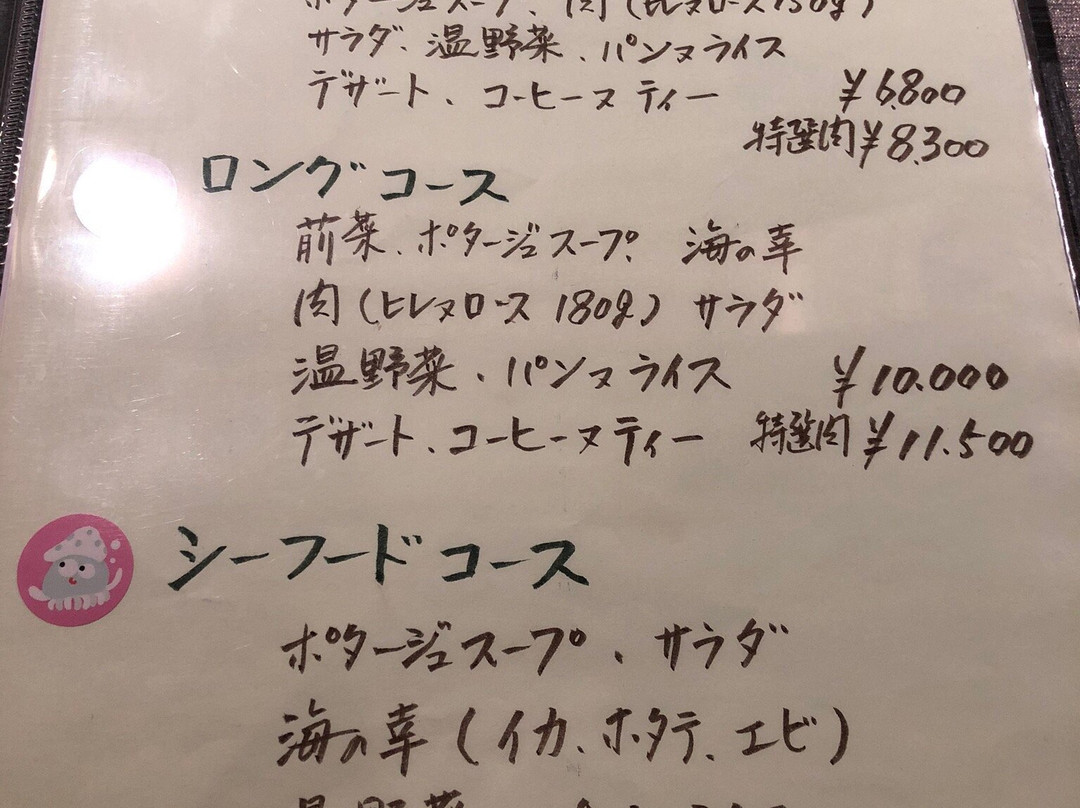 ポタージュスープ、肉(ヒレヌロース150g)
サラダ、温野菜、パンヌライス
デザート、コーヒーヌティー ¥6.800
特選肉¥8.300
ロングコース
前菜、ポタージュスープ、海の幸
肉(ヒレヌロース 180g) サラダ
温野菜、パンヌライス ¥10.000
デザート、コーヒーヌティー 特選肉¥11.500
シーフードコース
ポタージュスープ、サラダ
海の幸(イカ、ホタテ、エビ)
温野菜